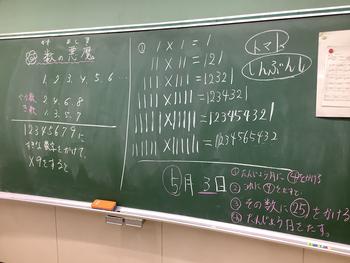 数の悪魔
1, 2, 3, 4, 5, 6 …
ぐう数 2, 4, 6, 8
き数 1, 3, 5, 7
12345679に
すきな数字をかけて、
×9をすると
① 1×1=1
11×11=121
111×111=12321
1111×1111=1234321
11111×11111=123454321
トマト
しんぶんし
5月3日
①たんじょう月に④をかける
②これに⑨をたす。
③その数に㉕をかける
④たんじょう日をたす。